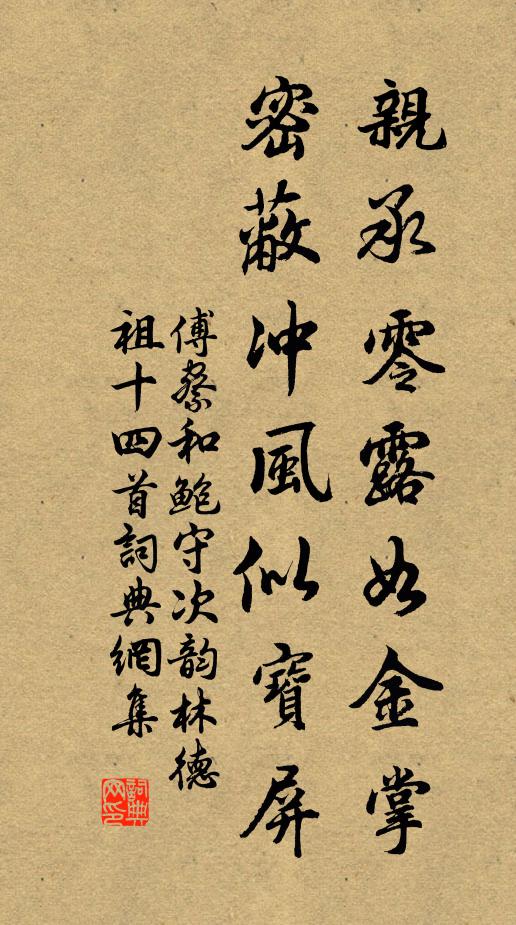 親承零露如金掌
密蔽冲風似寶屏
傅察和鮑守次韵林德
祖十四首詞典網集
詞典网印